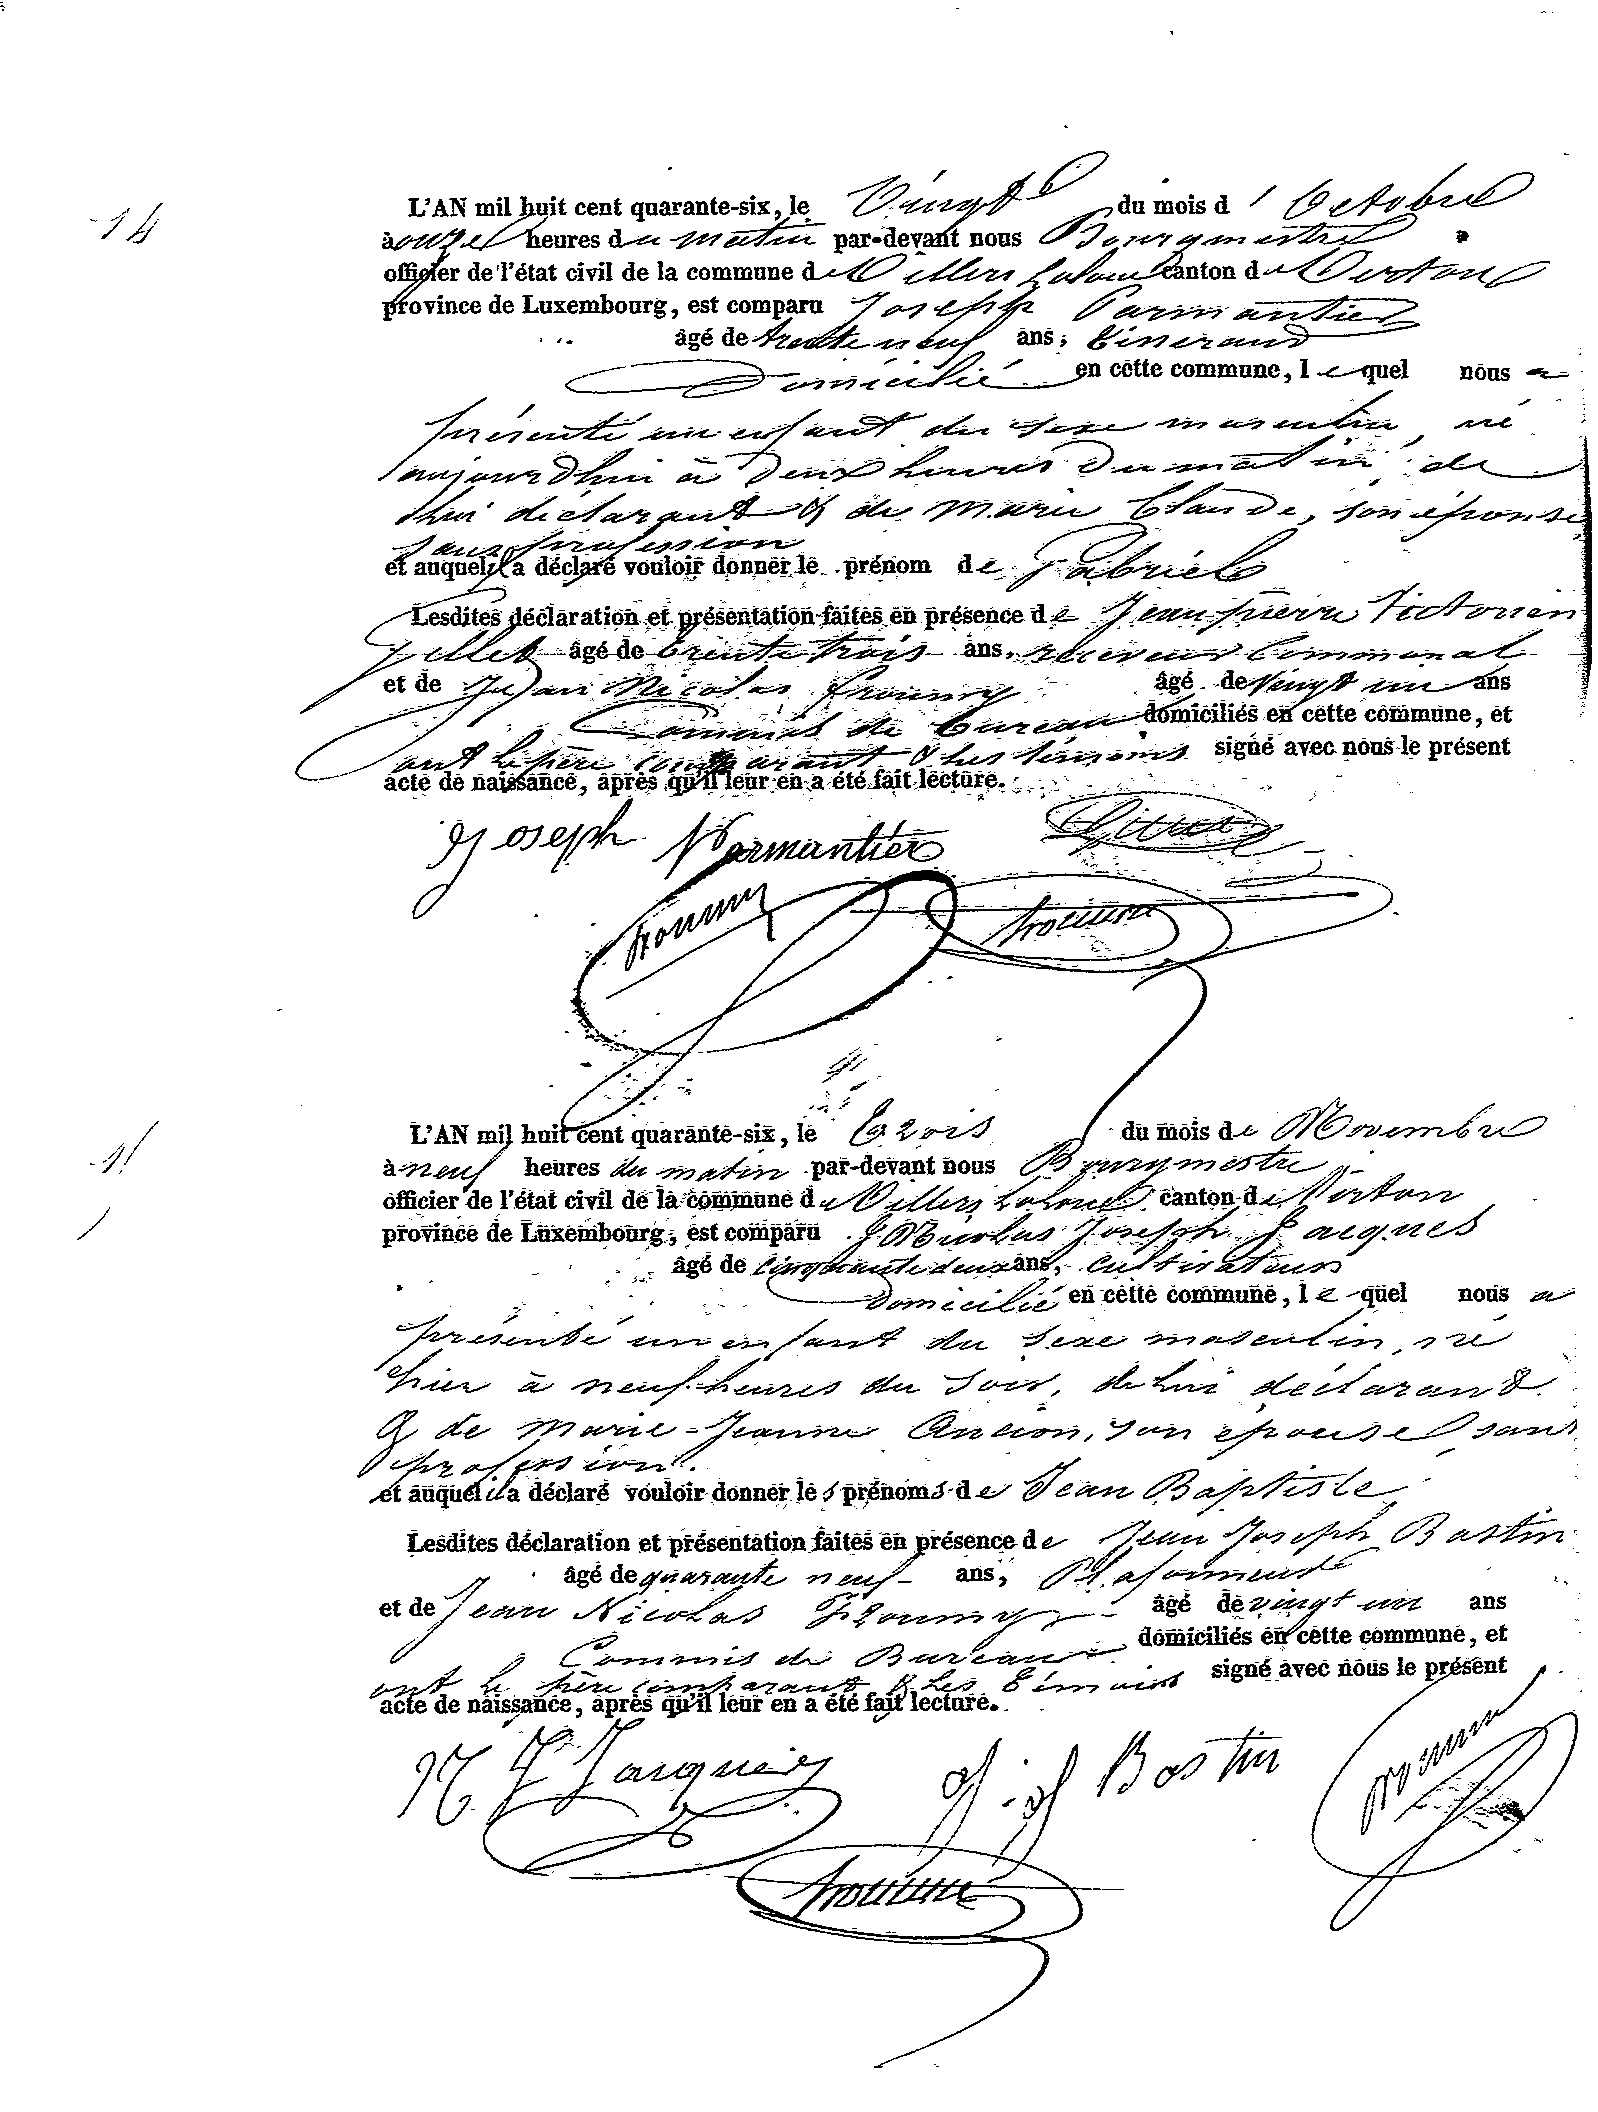 14
L'AN mil huit cent quarante-six, le Vingt du mois d' Octobre
à onze heures du matin par-devant nous Bourgmestre
officier de l'état civil de la commune de Villers Laloue canton de Virton
province de Luxembourg, est comparu Joseph Parmantier
âgé de trente neuf ans,
Domicilié en cette commune, lequel nous a
présenté un enfant du sexe masculin, né
aujourd'hui à deux heures du matin, de
lui déclarant & de Marie Claude, son épouse
sans profession
et auquel il a déclaré vouloir donner le prénom de Gabriel
Lesdites déclaration et présentation faites en présence de Jean pierre Victorien
Gillet âgé de trente trois ans, receveur Communal
et de Jean Nicolas âgé de vingt un ans
Commis de bureau domiciliés en cette commune, et
ont le père comparant & les témoins signé avec nous le présent
acte de naissance, après qu'il leur en a été fait lecture.
Joseph Parmantier
L'AN mil huit cent quarante-six, le trois du mois de Novembre
à neuf heures du matin par-devant nous Bourgmestre
officier de l'état civil de la commune de Villers Laloue canton de Virton
province de Luxembourg, est comparu Nicolas Joseph Jacques
âgé de cinquante deux ans, cultivateur
Domicilié en cette commune, lequel nous a
présenté un enfant du sexe masculin, né
hier à neuf heures du soir, de lui déclarant
& de Marie-Jeanne Ancion, son épouse, sans
profession.
et auquel il a déclaré vouloir donner les prénoms de Jean Baptiste
Lesdites déclaration et présentation faites en présence de Jean Joseph Bastin
âgé de quarante neuf ans, Plafonneur
et de Jean Nicolas âgé de vingt un ans
Commis de Bureau domiciliés en cette commune, et
ont le père comparant & les témoins signé avec nous le présent
acte de naissance, après qu'il leur en a été fait lecture.
N J Jacques Bastin